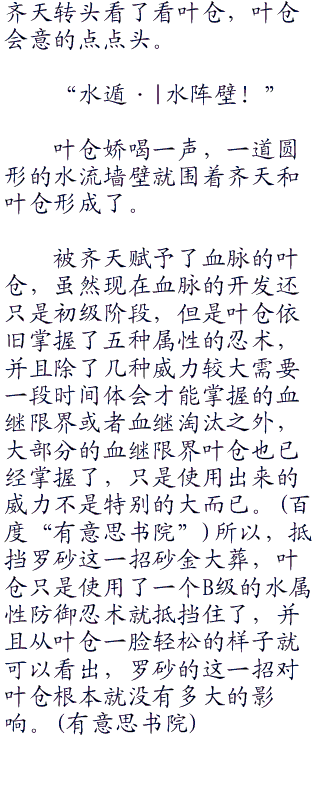 齐天转头看了看叶仓，叶仓
会意的点点头。
“水遁·|水阵壁！”
叶仓娇喝一声，一道圆
形的水流墙壁就围着齐天和
叶仓形成了。
被齐天赋予了血脉的叶
仓，虽然现在血脉的开发还
只是初级阶段，但是叶仓依
旧掌握了五种属性的忍术，
并且除了几种威力较大需要
一段时间体会才能掌握的血
继限界或者血继淘汰之外，
大部分的血继限界叶仓也已
经掌握了，只是使用出来的
威力不是特别的大而已。(百
度“有意思书院”)所以，抵
挡罗砂这一招砂金大葬，叶
仓只是使用了一个B级的水属
性防御忍术就抵挡住了，并
且从叶仓一脸轻松的样子就
可以看出，罗砂的这一招对
叶仓根本就没有多大的影
响。(有意思书院)